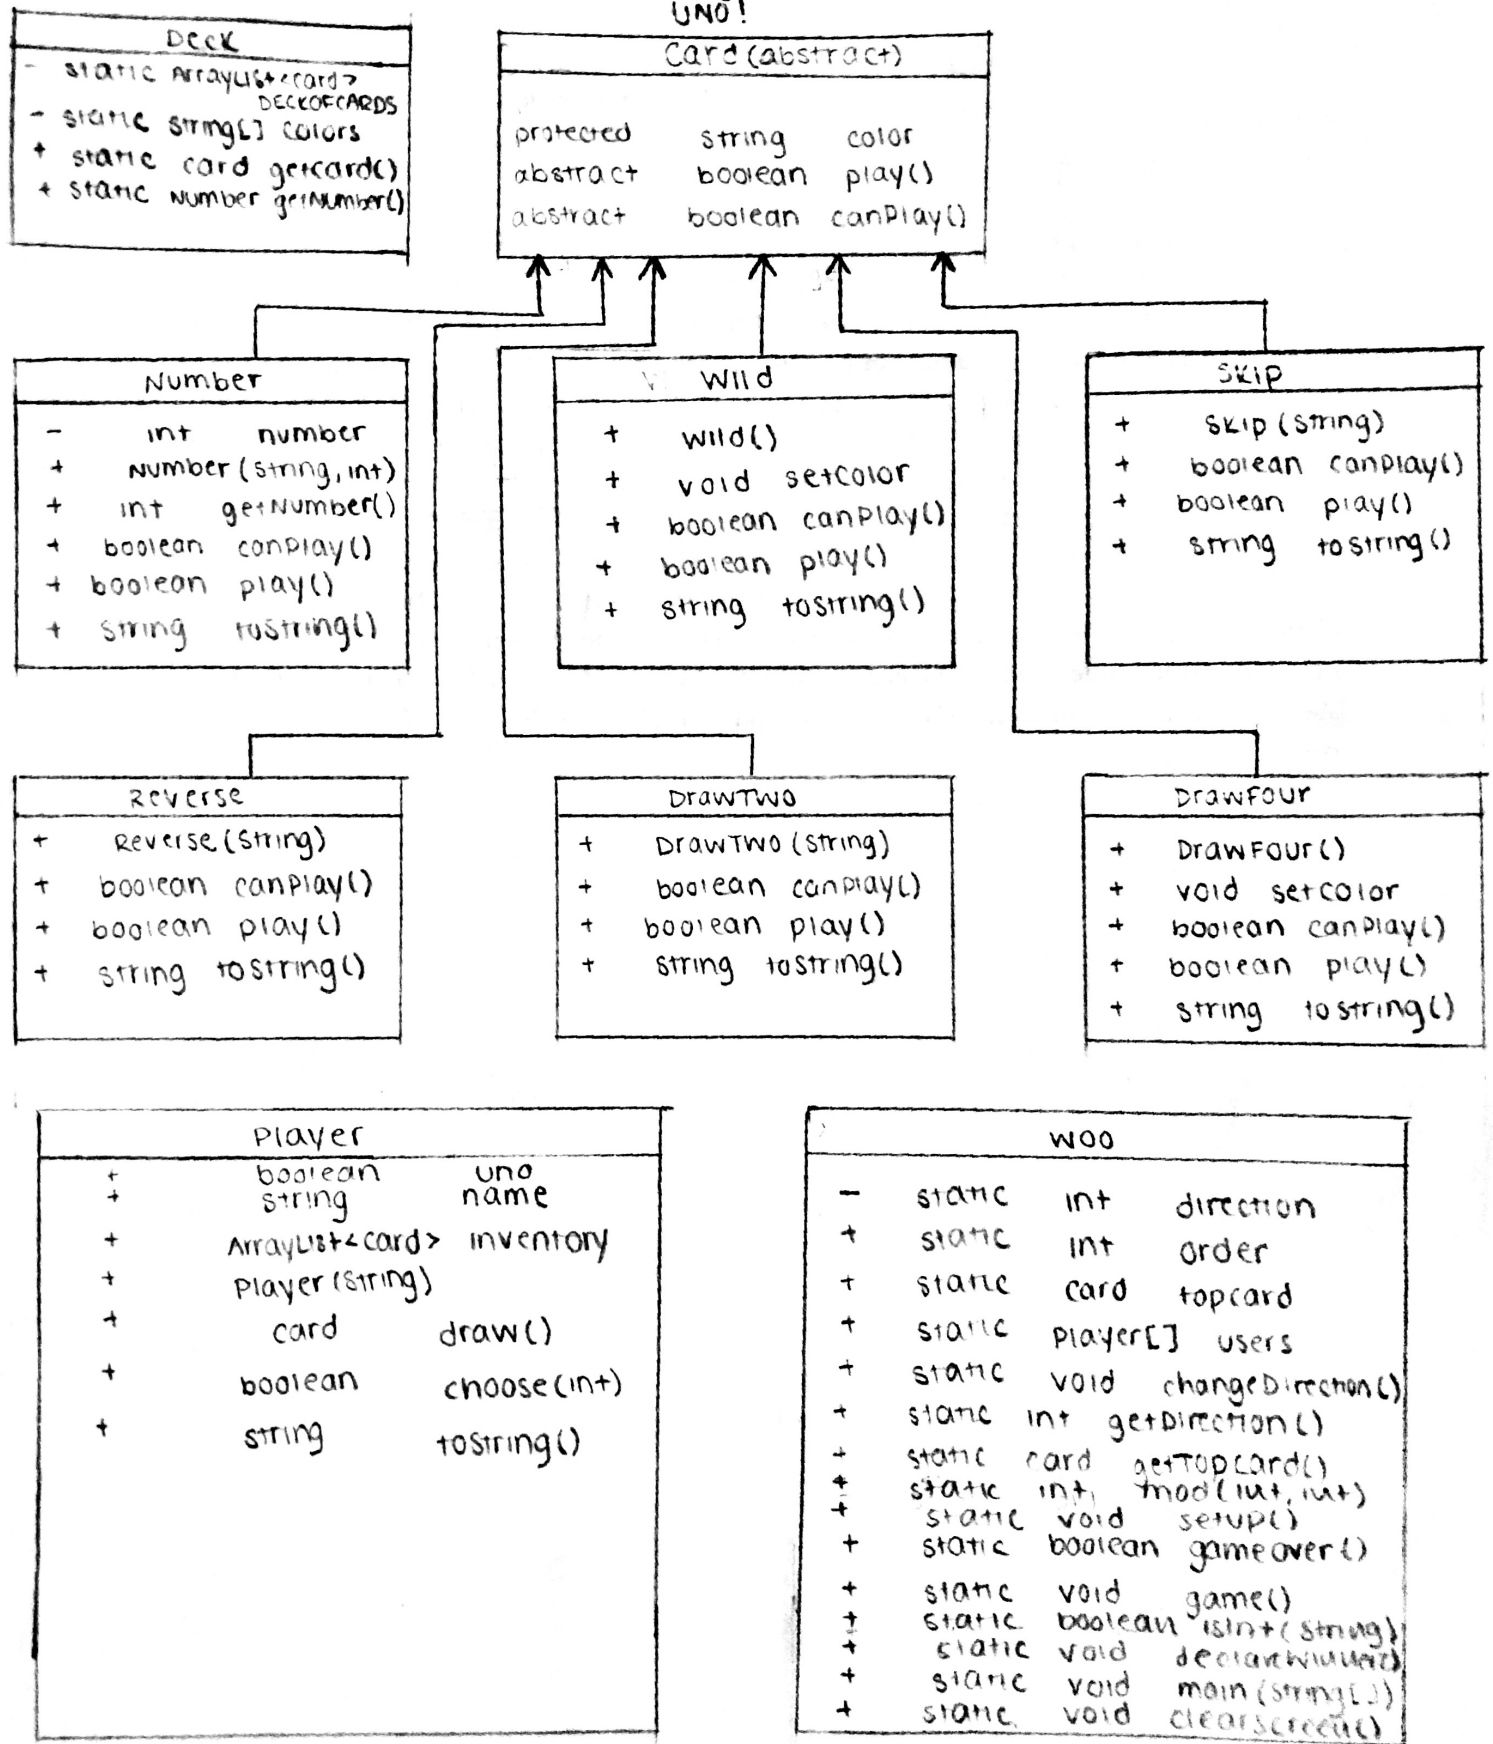 UNO!
Deck
- static ArrayList<card>
DECKOFCARDS
- static string[] colors
+ static card getcard()
+ static Number getNumber()
Card (abstract)
protected string color
abstract boolean play()
abstract boolean canPlay()
Number
- int number
+ Number (string, int)
+ int getNumber()
+ boolean canPlay()
+ boolean play()
+ string toString()
Wild
+ Wild()
+ void setcolor
+ boolean canPlay()
+ boolean play()
+ string toString()
Skip
+ Skip (String)
+ boolean canPlay()
+ boolean play()
+ string toString()
Reverse
+ Reverse (String)
+ boolean canPlay()
+ boolean play()
+ string toString()
DrawTwo
+ DrawTwo (String)
+ boolean canPlay()
+ boolean play()
+ string toString()
DrawFour
+ DrawFour()
+ void setcolor
+ boolean canPlay()
+ boolean play()
+ string toString()
Player
+ boolean uno
+ string name
+ ArrayList<card> inventory
+ Player (String)
+ card draw()
+ boolean choose(int)
+ string toString()
Woo
- static int direction
+ static int order
+ static card topcard
+ static Player[] users
+ static void changeDirection()
+ static int getDirection()
+ static card getTopCard()
+ static int mod(int, int)
+ static void setup()
+ static boolean gameover()
+ static void game()
+ static boolean isInt(String)
+ static void declareWinner()
+ static void main(String[])
+ static void clearscreen()